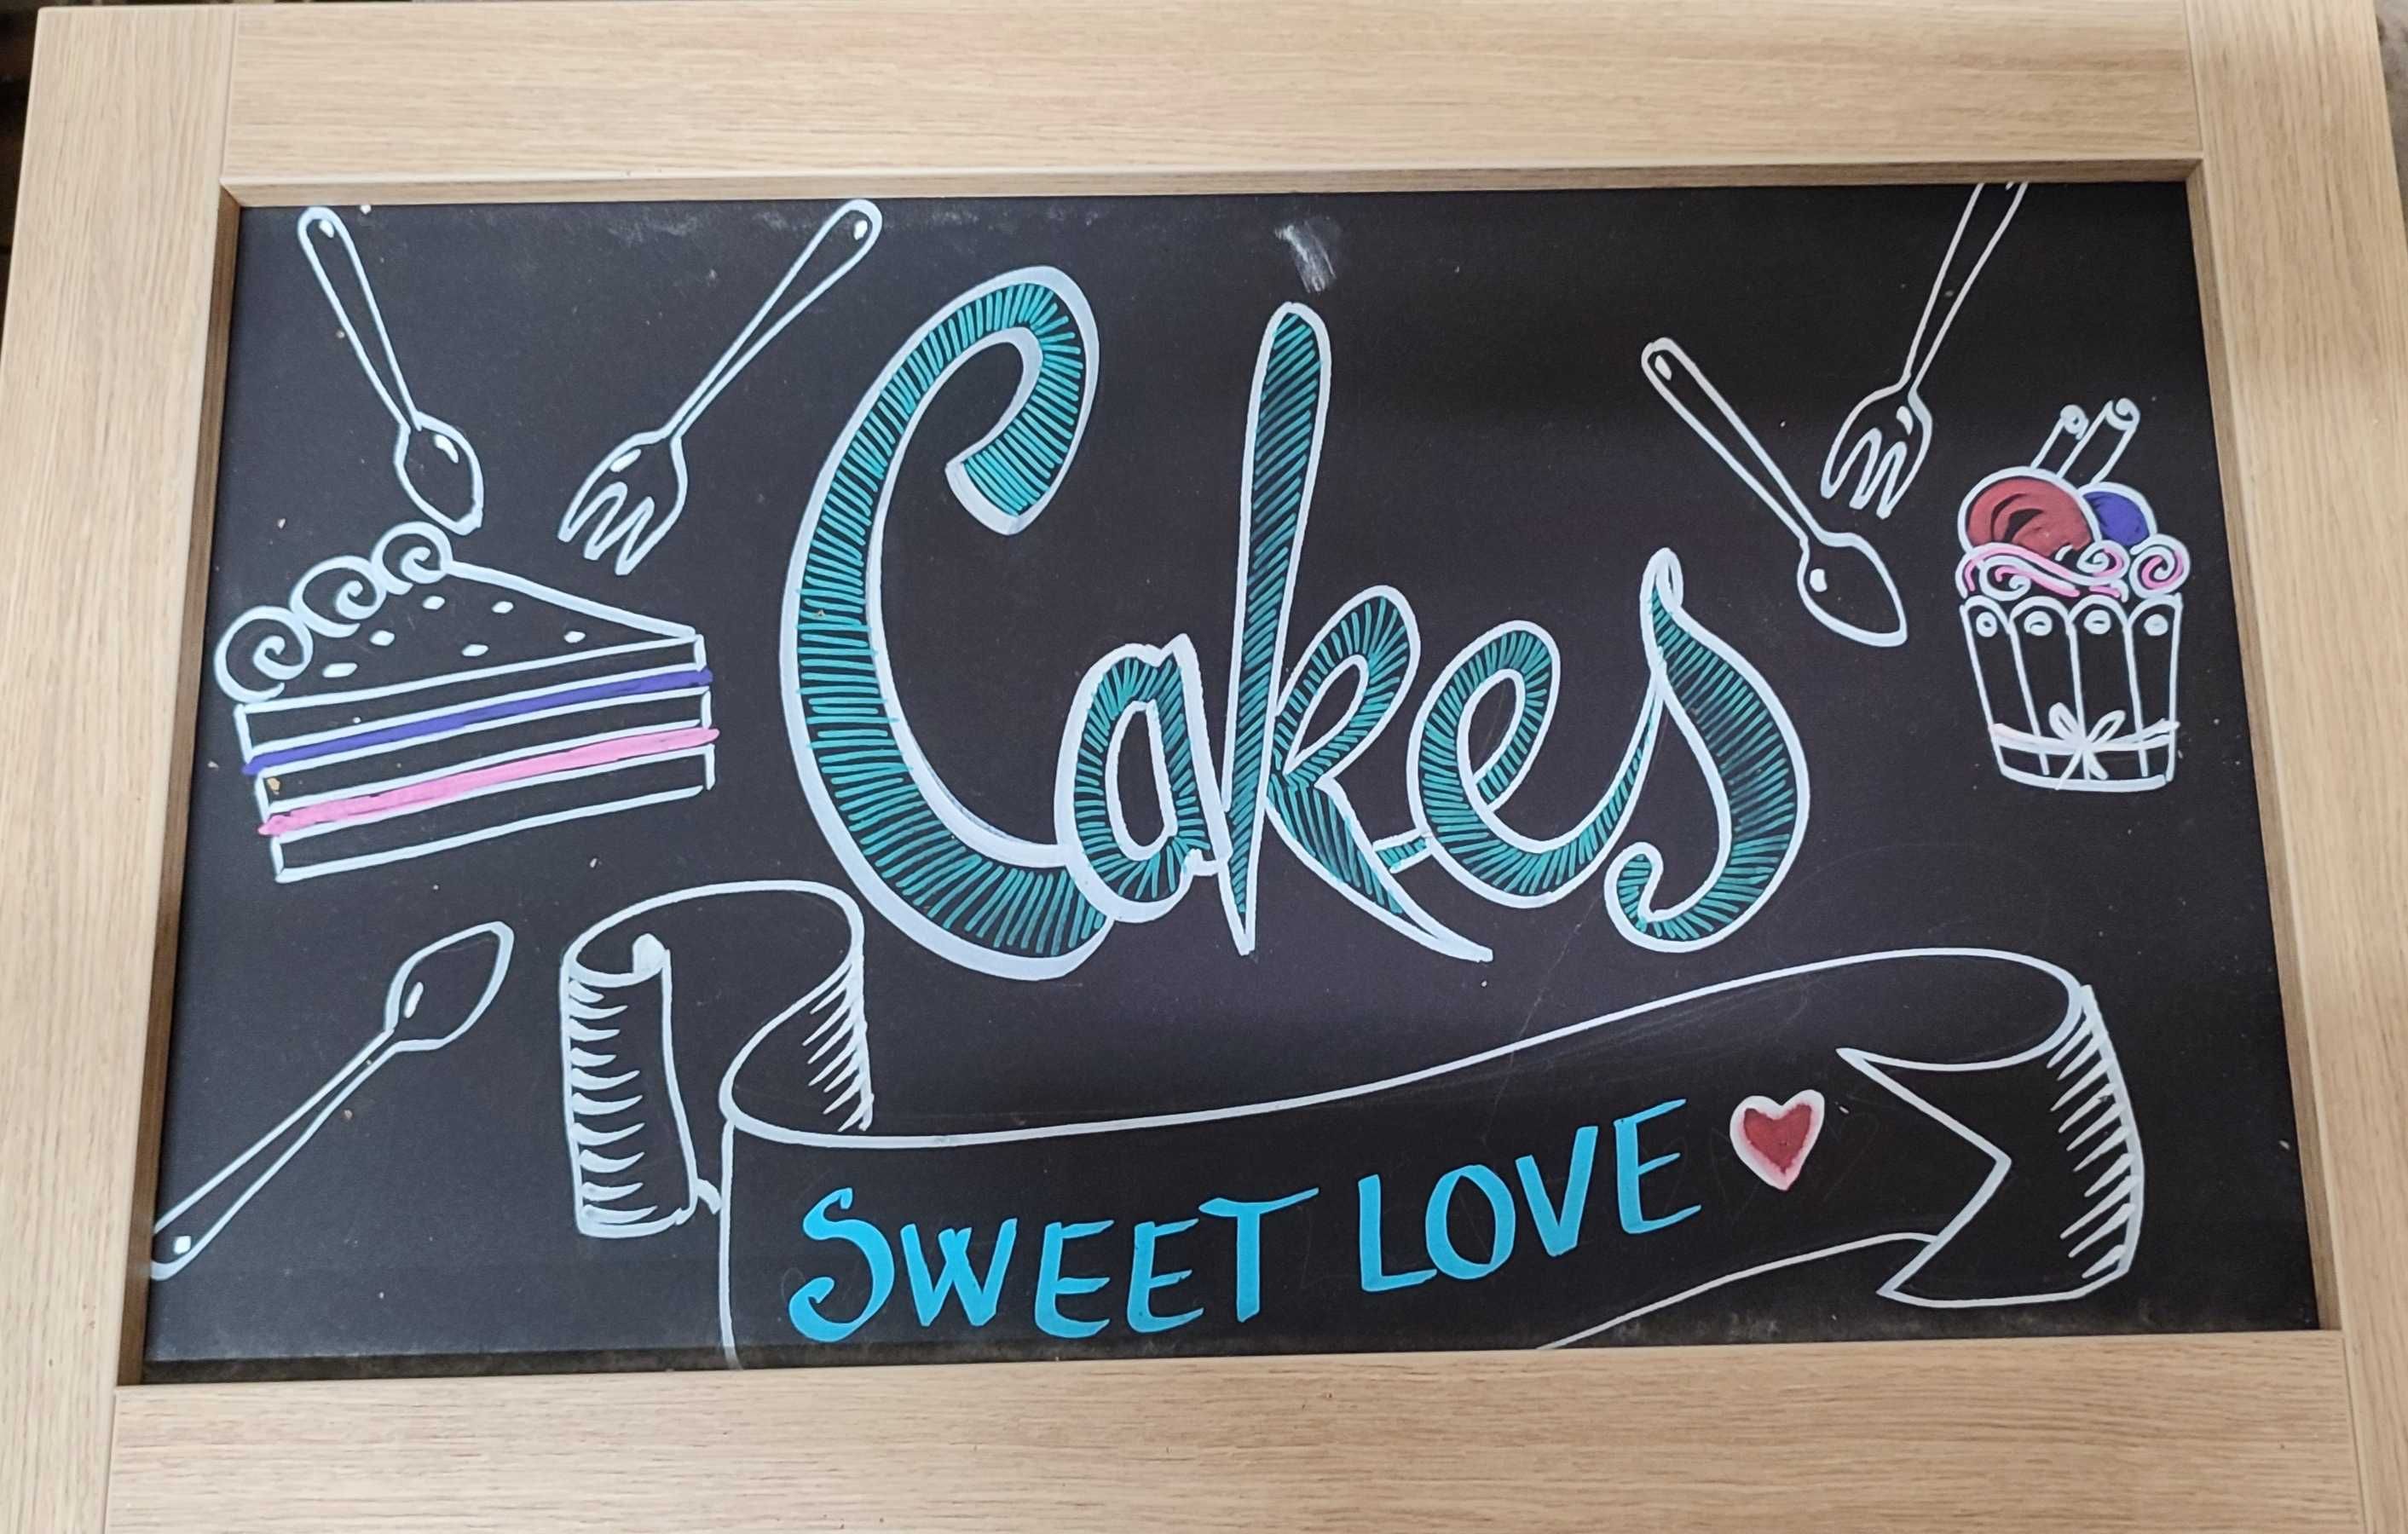 Cakes
SWEET LOVE